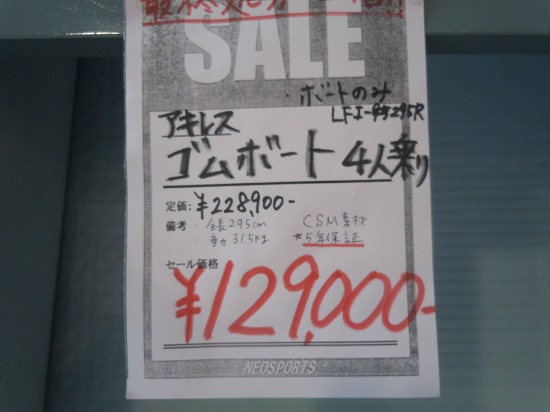 SALE
・ボートのみ
アキレス
ゴムボート 4人乗り
定価: ¥228,900-
備考 ・全長295cm CSM素材
31.5kg ★5年保証
セール価格
¥129,000-
NEOSPORTS